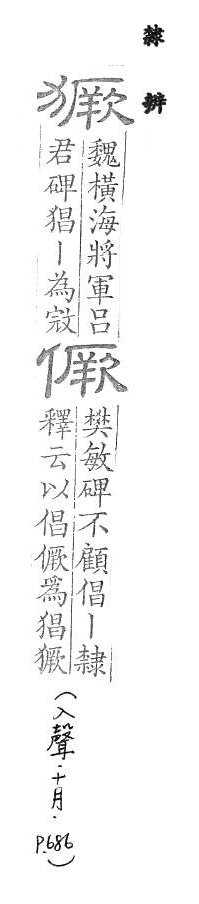 隸辨
獗
魏橫海將軍呂
君碑猖丨為寇
𠎮
樊敏碑不顧倡丨隸
釋云以倡𠎮爲猖獗
(入聲·十月·
P.686)